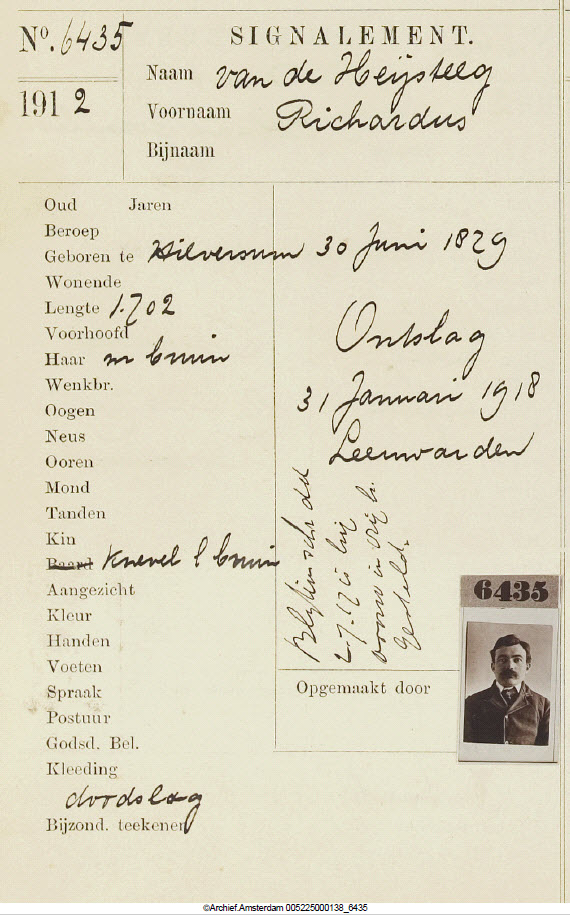 Nº. 6435
SIGNALEMENT.
1912
Naam van de Heijsteeg
Voornaam Richardus
Bijnaam
Oud Jaren
Beroep
Geboren te Hilversum 30 Juni 1879
Wonende
Lengte 1.702
Voorhoofd
Haar m bruin
Wenkbr.
Oogen
Neus
Ooren
Mond
Tanden
Kin
Baard Knevel l bruin
Aangezicht
Kleur
Handen
Voeten
Spraak
Postuur
Godsd. Bel.
Kleeding
doodslag
Bijzond. teekenen
Ontslag
31 Januari 1918
Leeuwarden
Blijkens schr dd
27.17 is hij
voorw in vrijh.
gesteld.
Opgemaakt door
6435
©Archief.Amsterdam 005225000138_6435